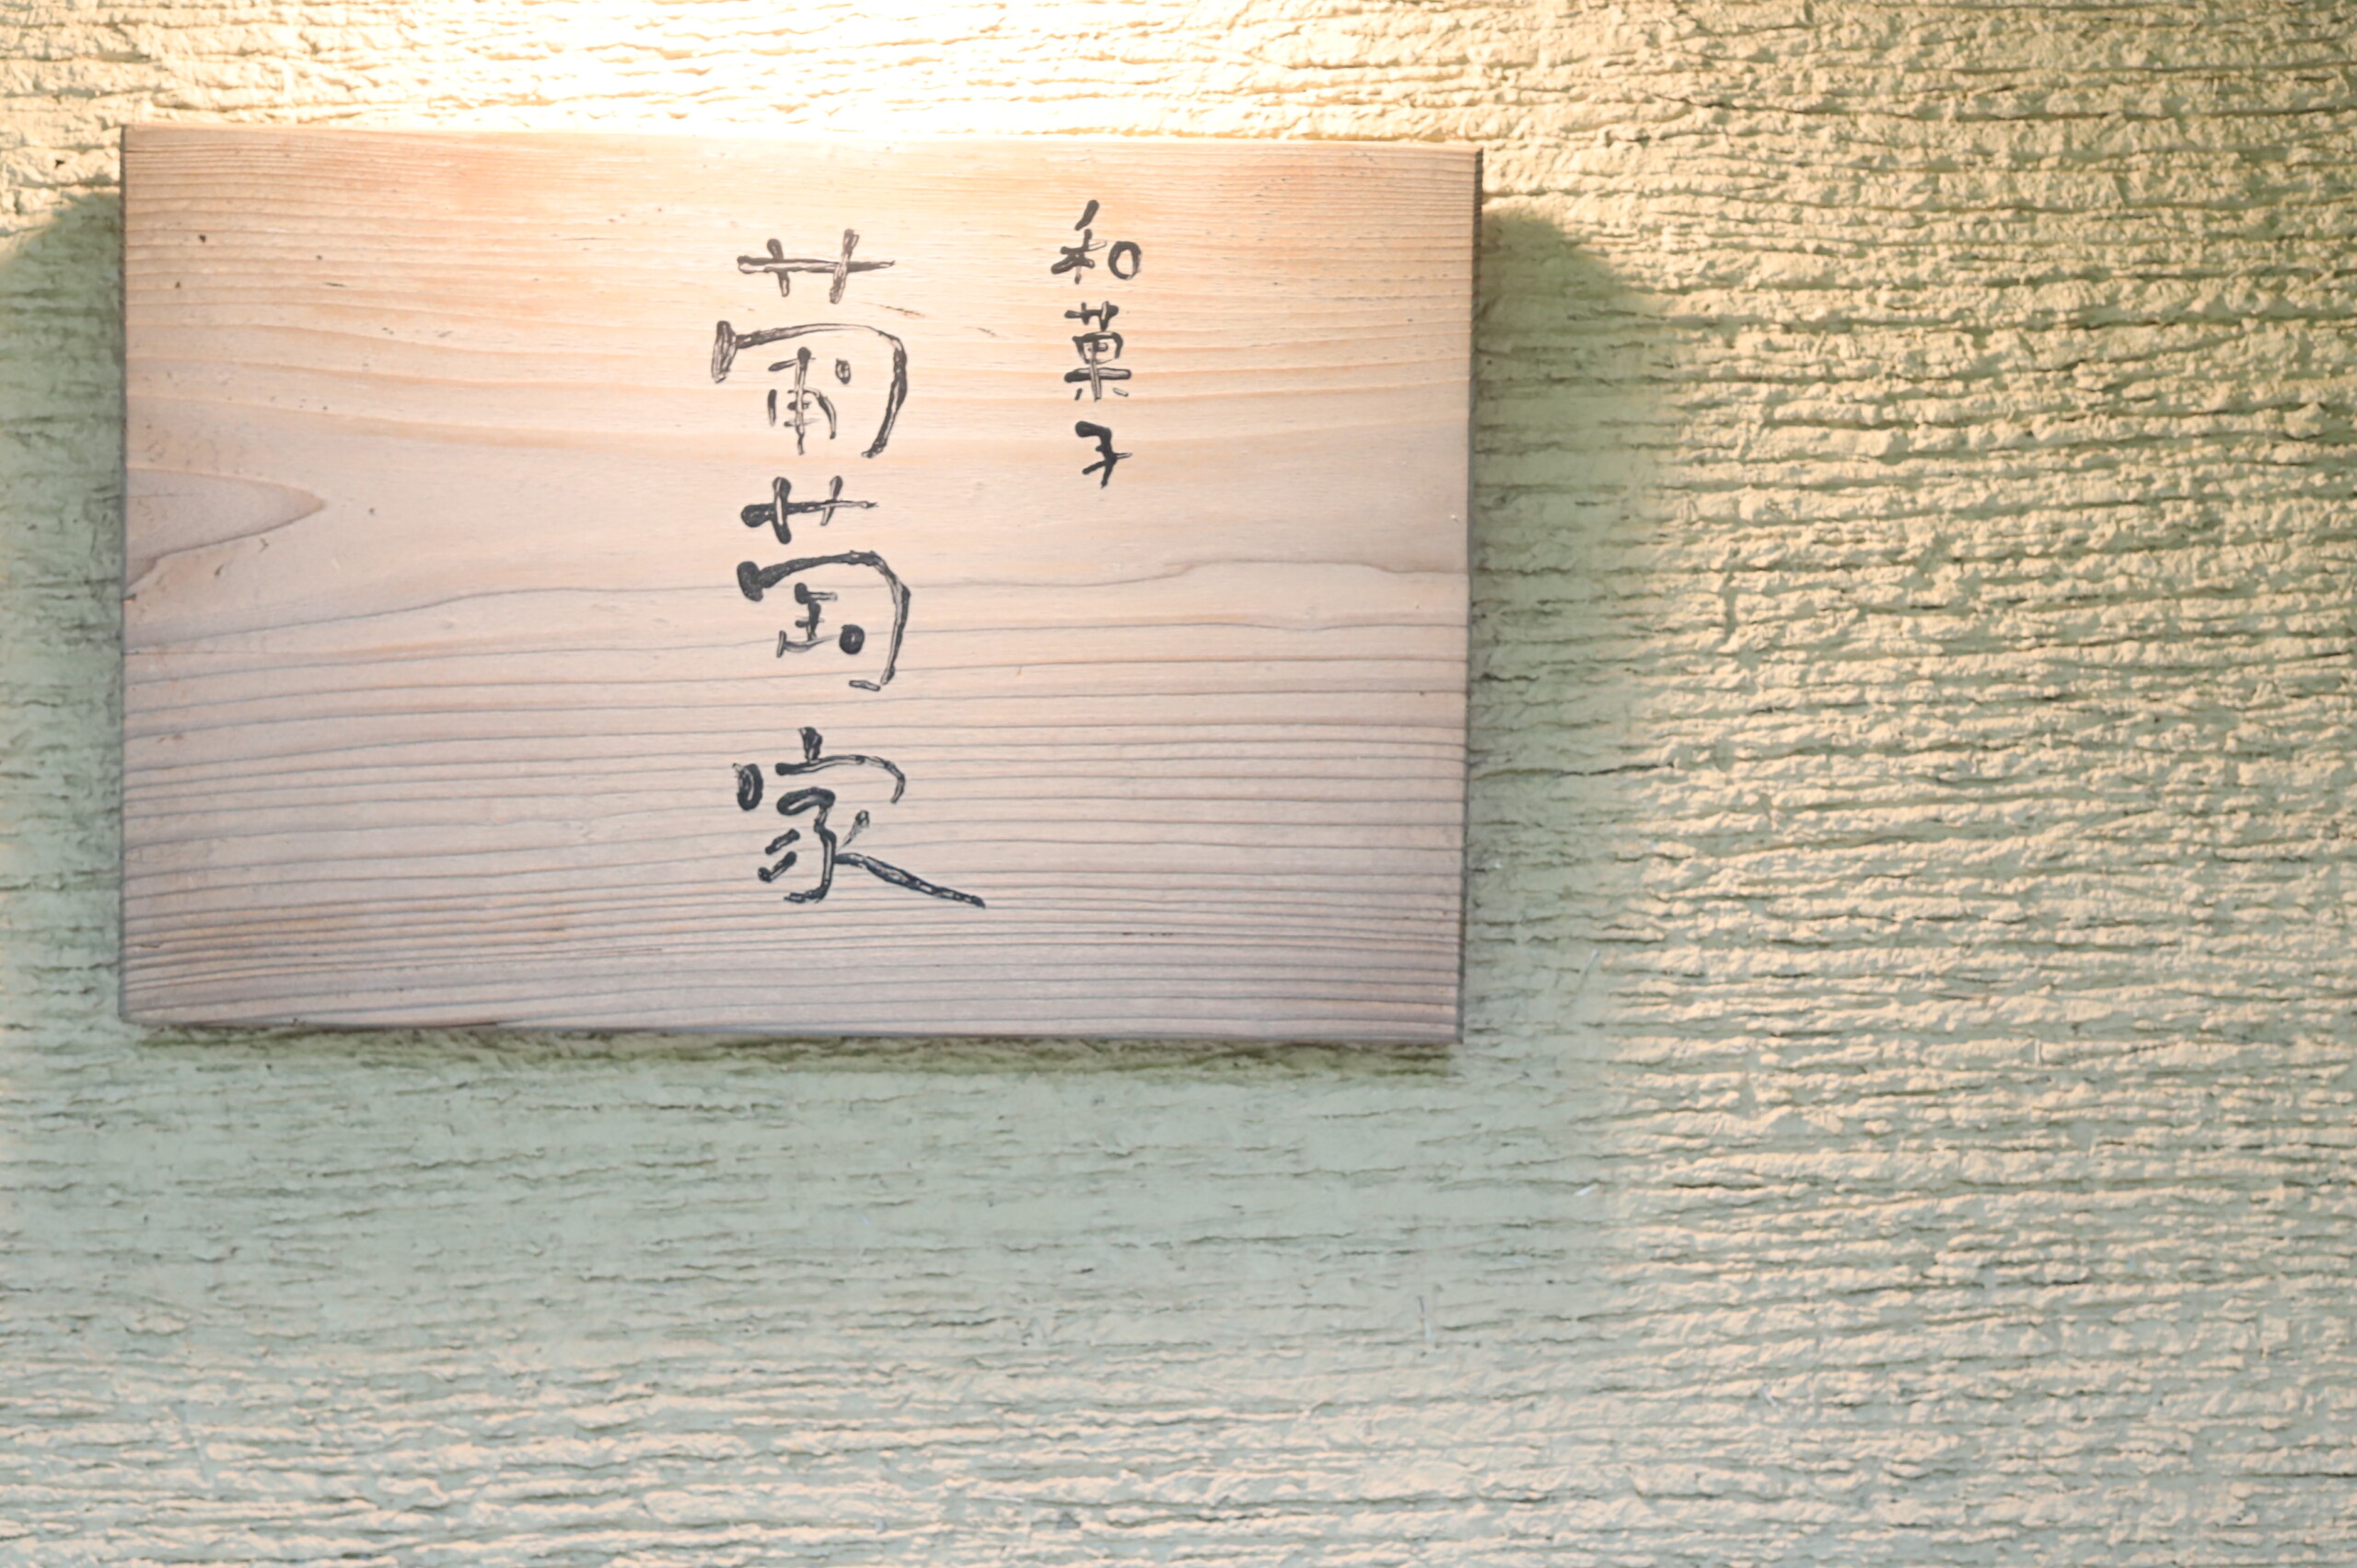 和菓子
葡萄家